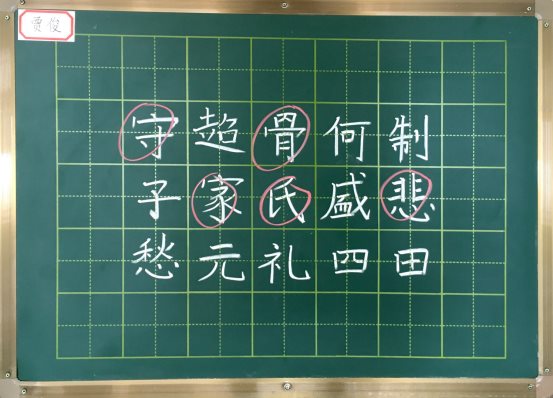 贾俊
守超骨何制
子家氏盛悲
愁元礼四田